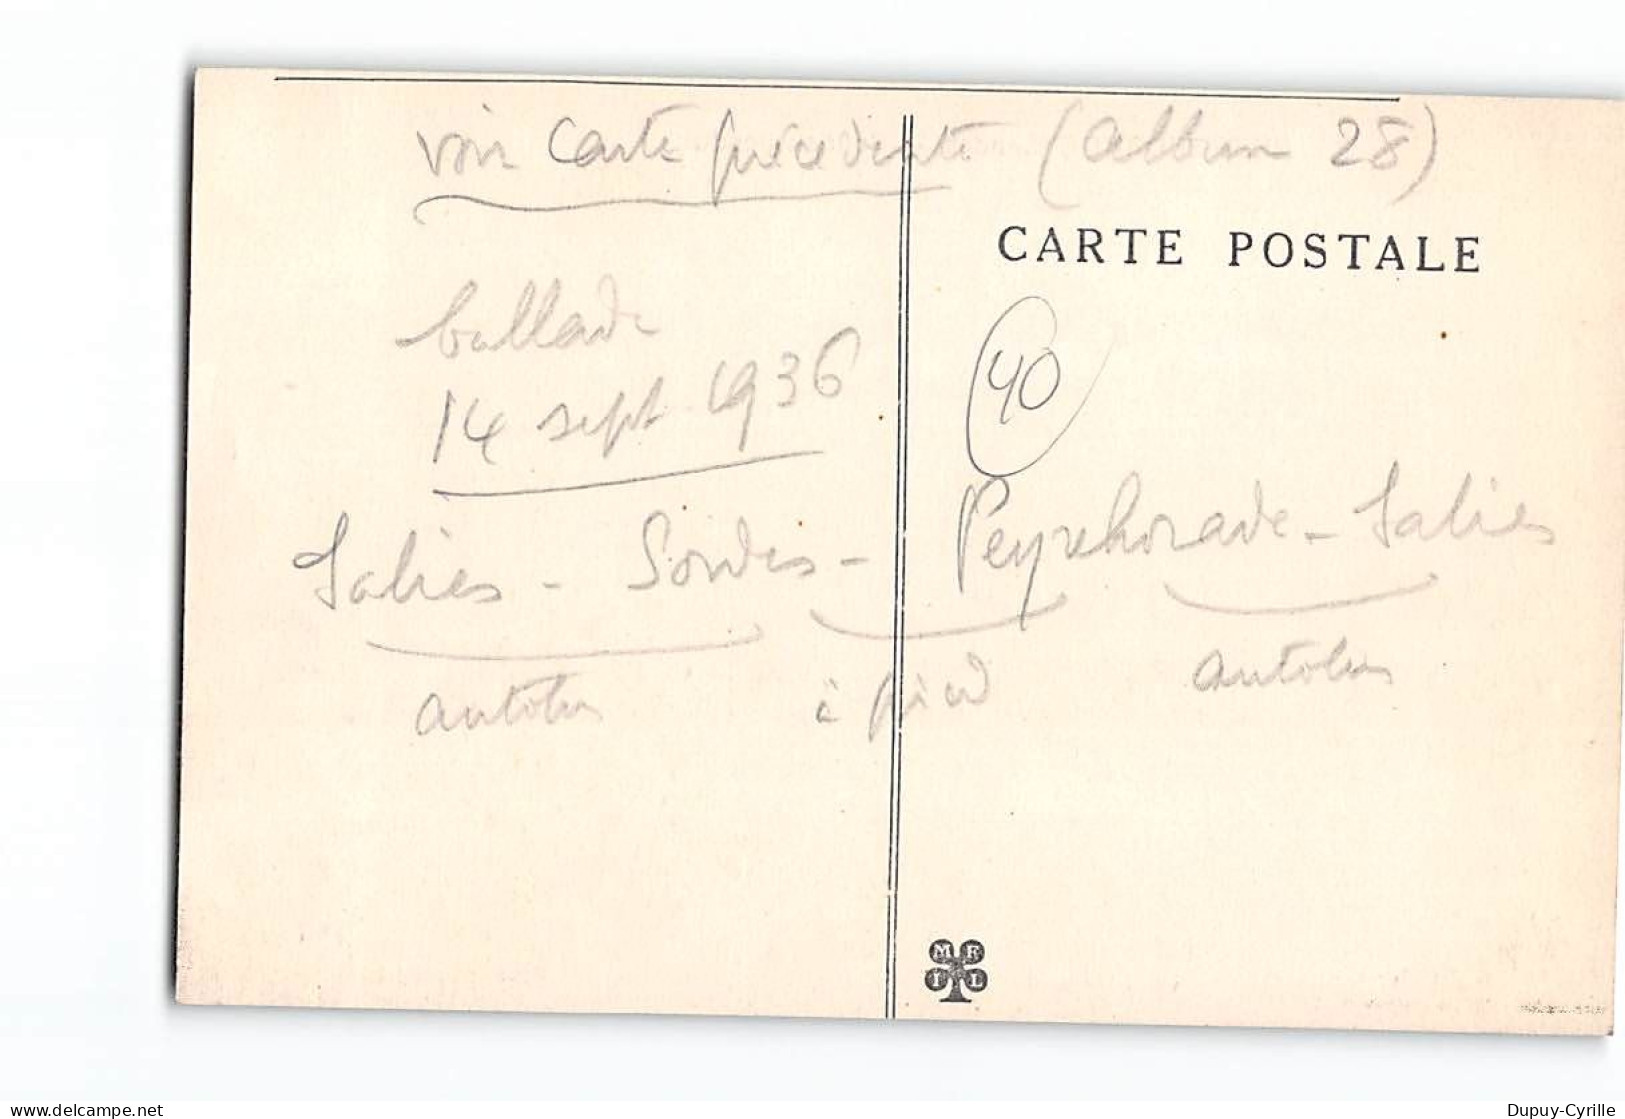 voir carte précédente (album 28)
CARTE POSTALE
ballade
14 sept 1936
40
Salies - Sordes - Peyrehorade - Salies
autobus à pied autobus
M F
I L
delcampe.net
Dupuy-Cyrille